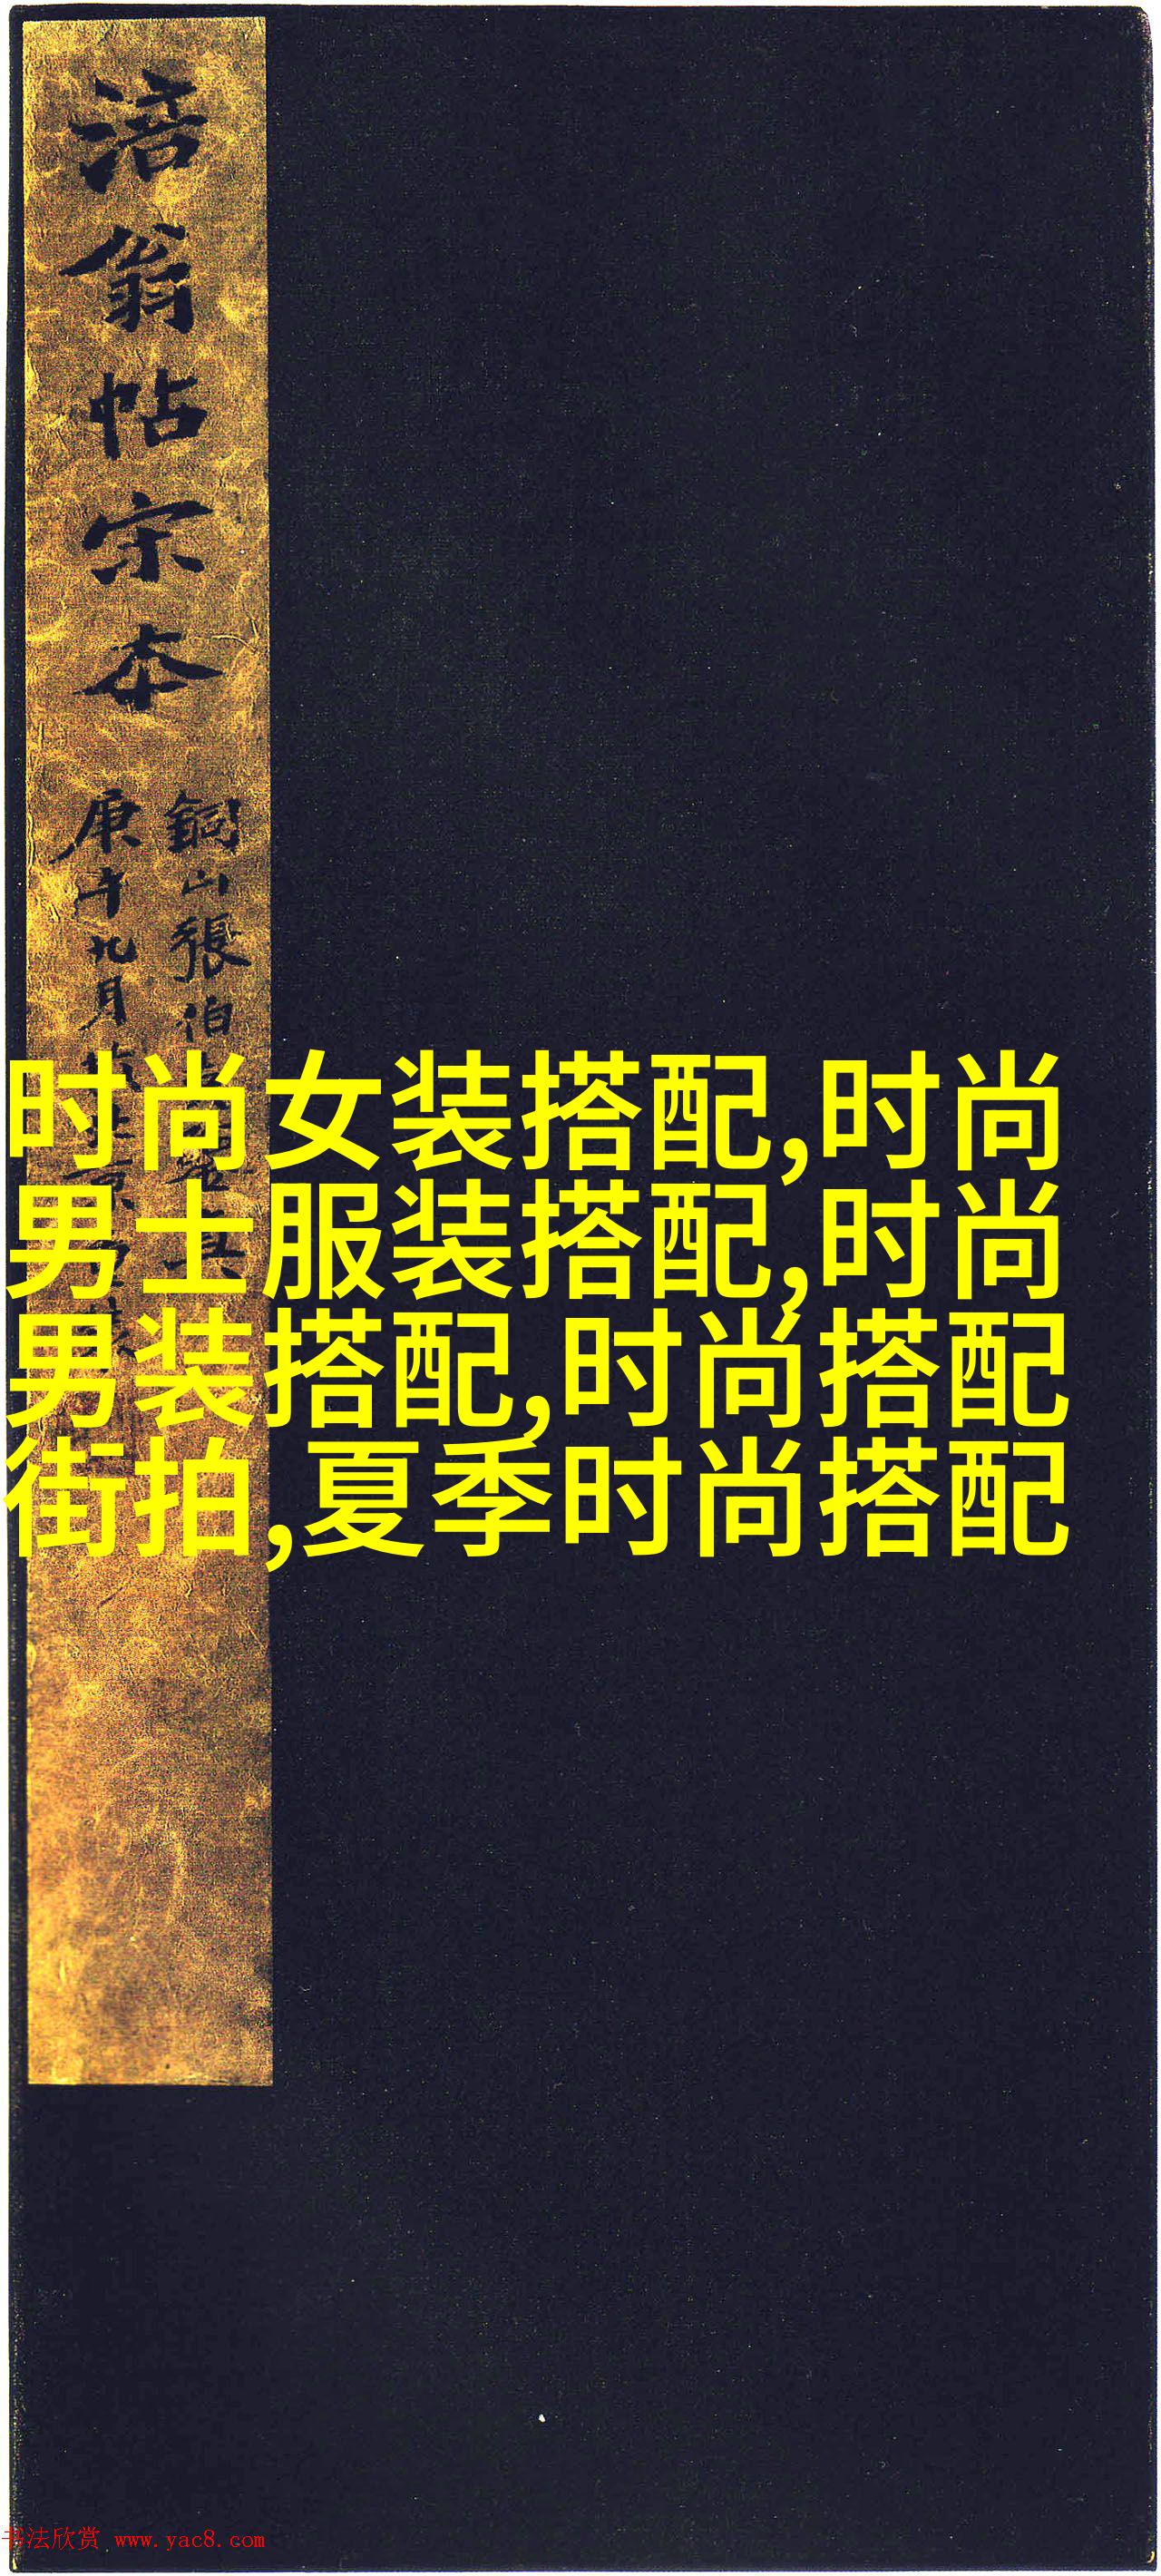 涪翁帖宋本
銅山張伯
庚午九月
时尚女装搭配,时尚
男士服装搭配,时尚
男装搭配,时尚搭配
街拍,夏季时尚搭配
书法欣赏 www.yac8.com